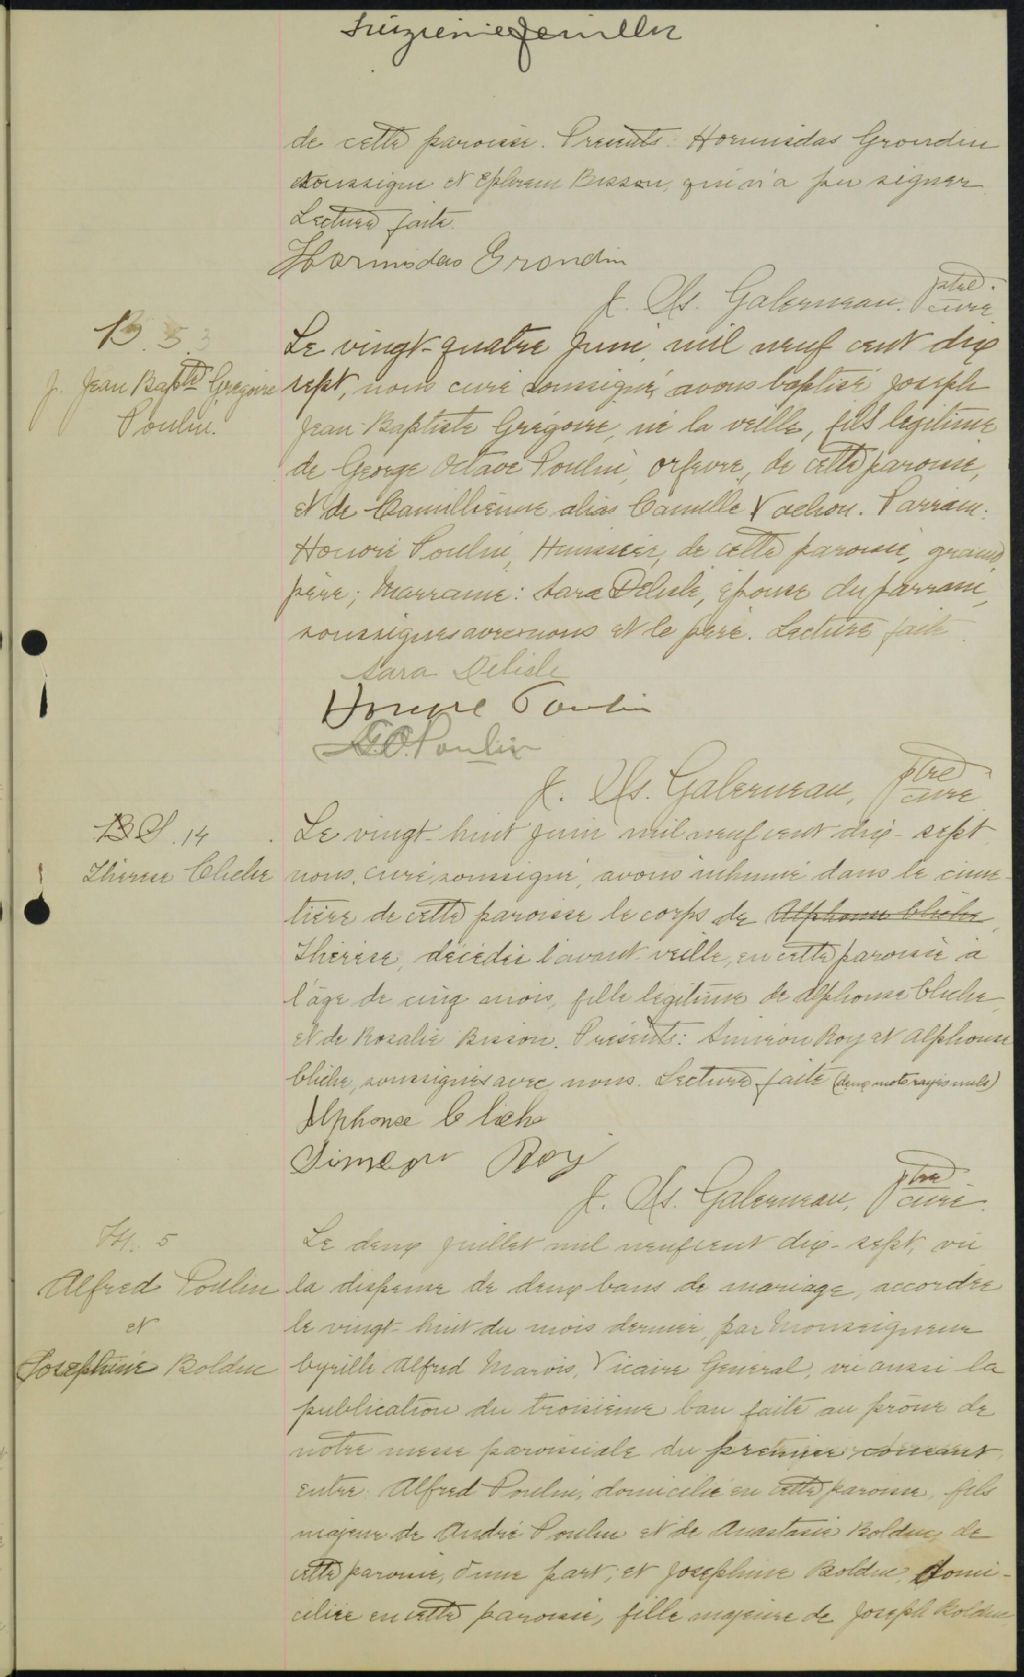 feuillet
de cette paroisse. Présents: Hormisdas Grondin
soussigné et Ephrem Bisson, qui n'a pu signer
Lecture faite.
Hormisdas Grondin
J. Ls. Galerneau, ptre curé
B. 53
J. Jean Bapte Gregoire
Poulin.
Le vingt-quatre Juin, mil neuf cent dix
sept, nous curé soussigné, avons baptisé Joseph
Jean-Baptiste Grégoire, né la veille, fils légitime
de George Octave Poulin, orfèvre, de cette paroisse,
et de Camillienne alias Camille Vachon. Parrain:
Honoré Poulin, Huissier, de cette paroisse, grand
père; Marraine: Sara Delisle, épouse du parrain,
soussignés avec nous et le père. Lecture faite
Sara Delisle
Honoré Poulin
G.O. Poulin
J. Ls. Galerneau, ptre curé
S. 14
Thérèse Cliche
Le vingt-huit juin mil neuf cent dix-sept
nous, curé, soussigné, avons inhumé dans le cime-
tière de cette paroisse le corps de Alphonse Cliche,
Thérèse, décédée l'avant-veille, en cette paroisse à
l'âge de cinq mois, fille légitime de Alphonse Cliche
et de Rosalie Bisson. Présents: Siméon Roy et Alphonse
Cliche, soussignés avec nous. Lecture faite (deux mots rayés nuls)
Alphonse Cliche
Simeon Roy
J. Ls. Galerneau, ptre curé.
M. 5
Alfred Poulin
et
Josephine Bolduc
Le deux juillet mil neuf cent dix-sept, vu
la dispense de deux bans de mariage, accordée
le vingt-huit du mois dernier, par Monseigneur
Cyrille Alfred Marois, Vicaire Général, vu aussi la
publication du troisième ban faite au prône de
notre messe paroissiale du premier courant,
entre Alfred Poulin, domicilié en cette paroisse, fils
majeur de André Poulin et de Anastasie Bolduc, de
cette paroisse, d'une part, et Josephine Bolduc, domi-
ciliée en cette paroisse, fille majeure de Joseph Bolduc,